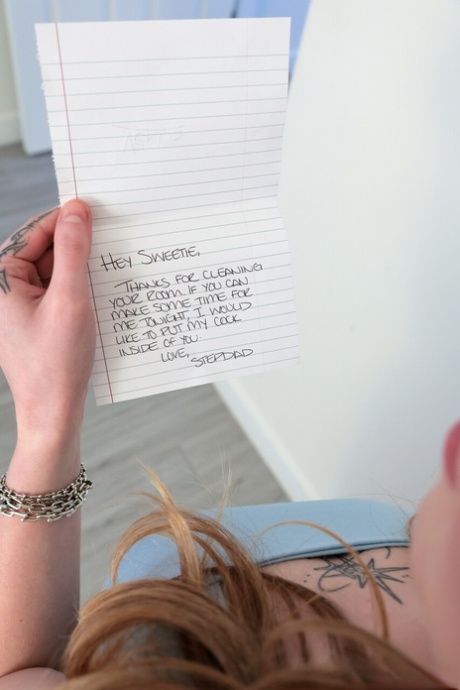 HEY SWEETIE,
THANKS FOR CLEANING
YOUR ROOM. IF YOU CAN
MAKE SOME TIME FOR
ME TONIGHT, I WOULD
LIKE TO PUT MY COCK
INSIDE OF YOU.
LOVE,
STEPDAD